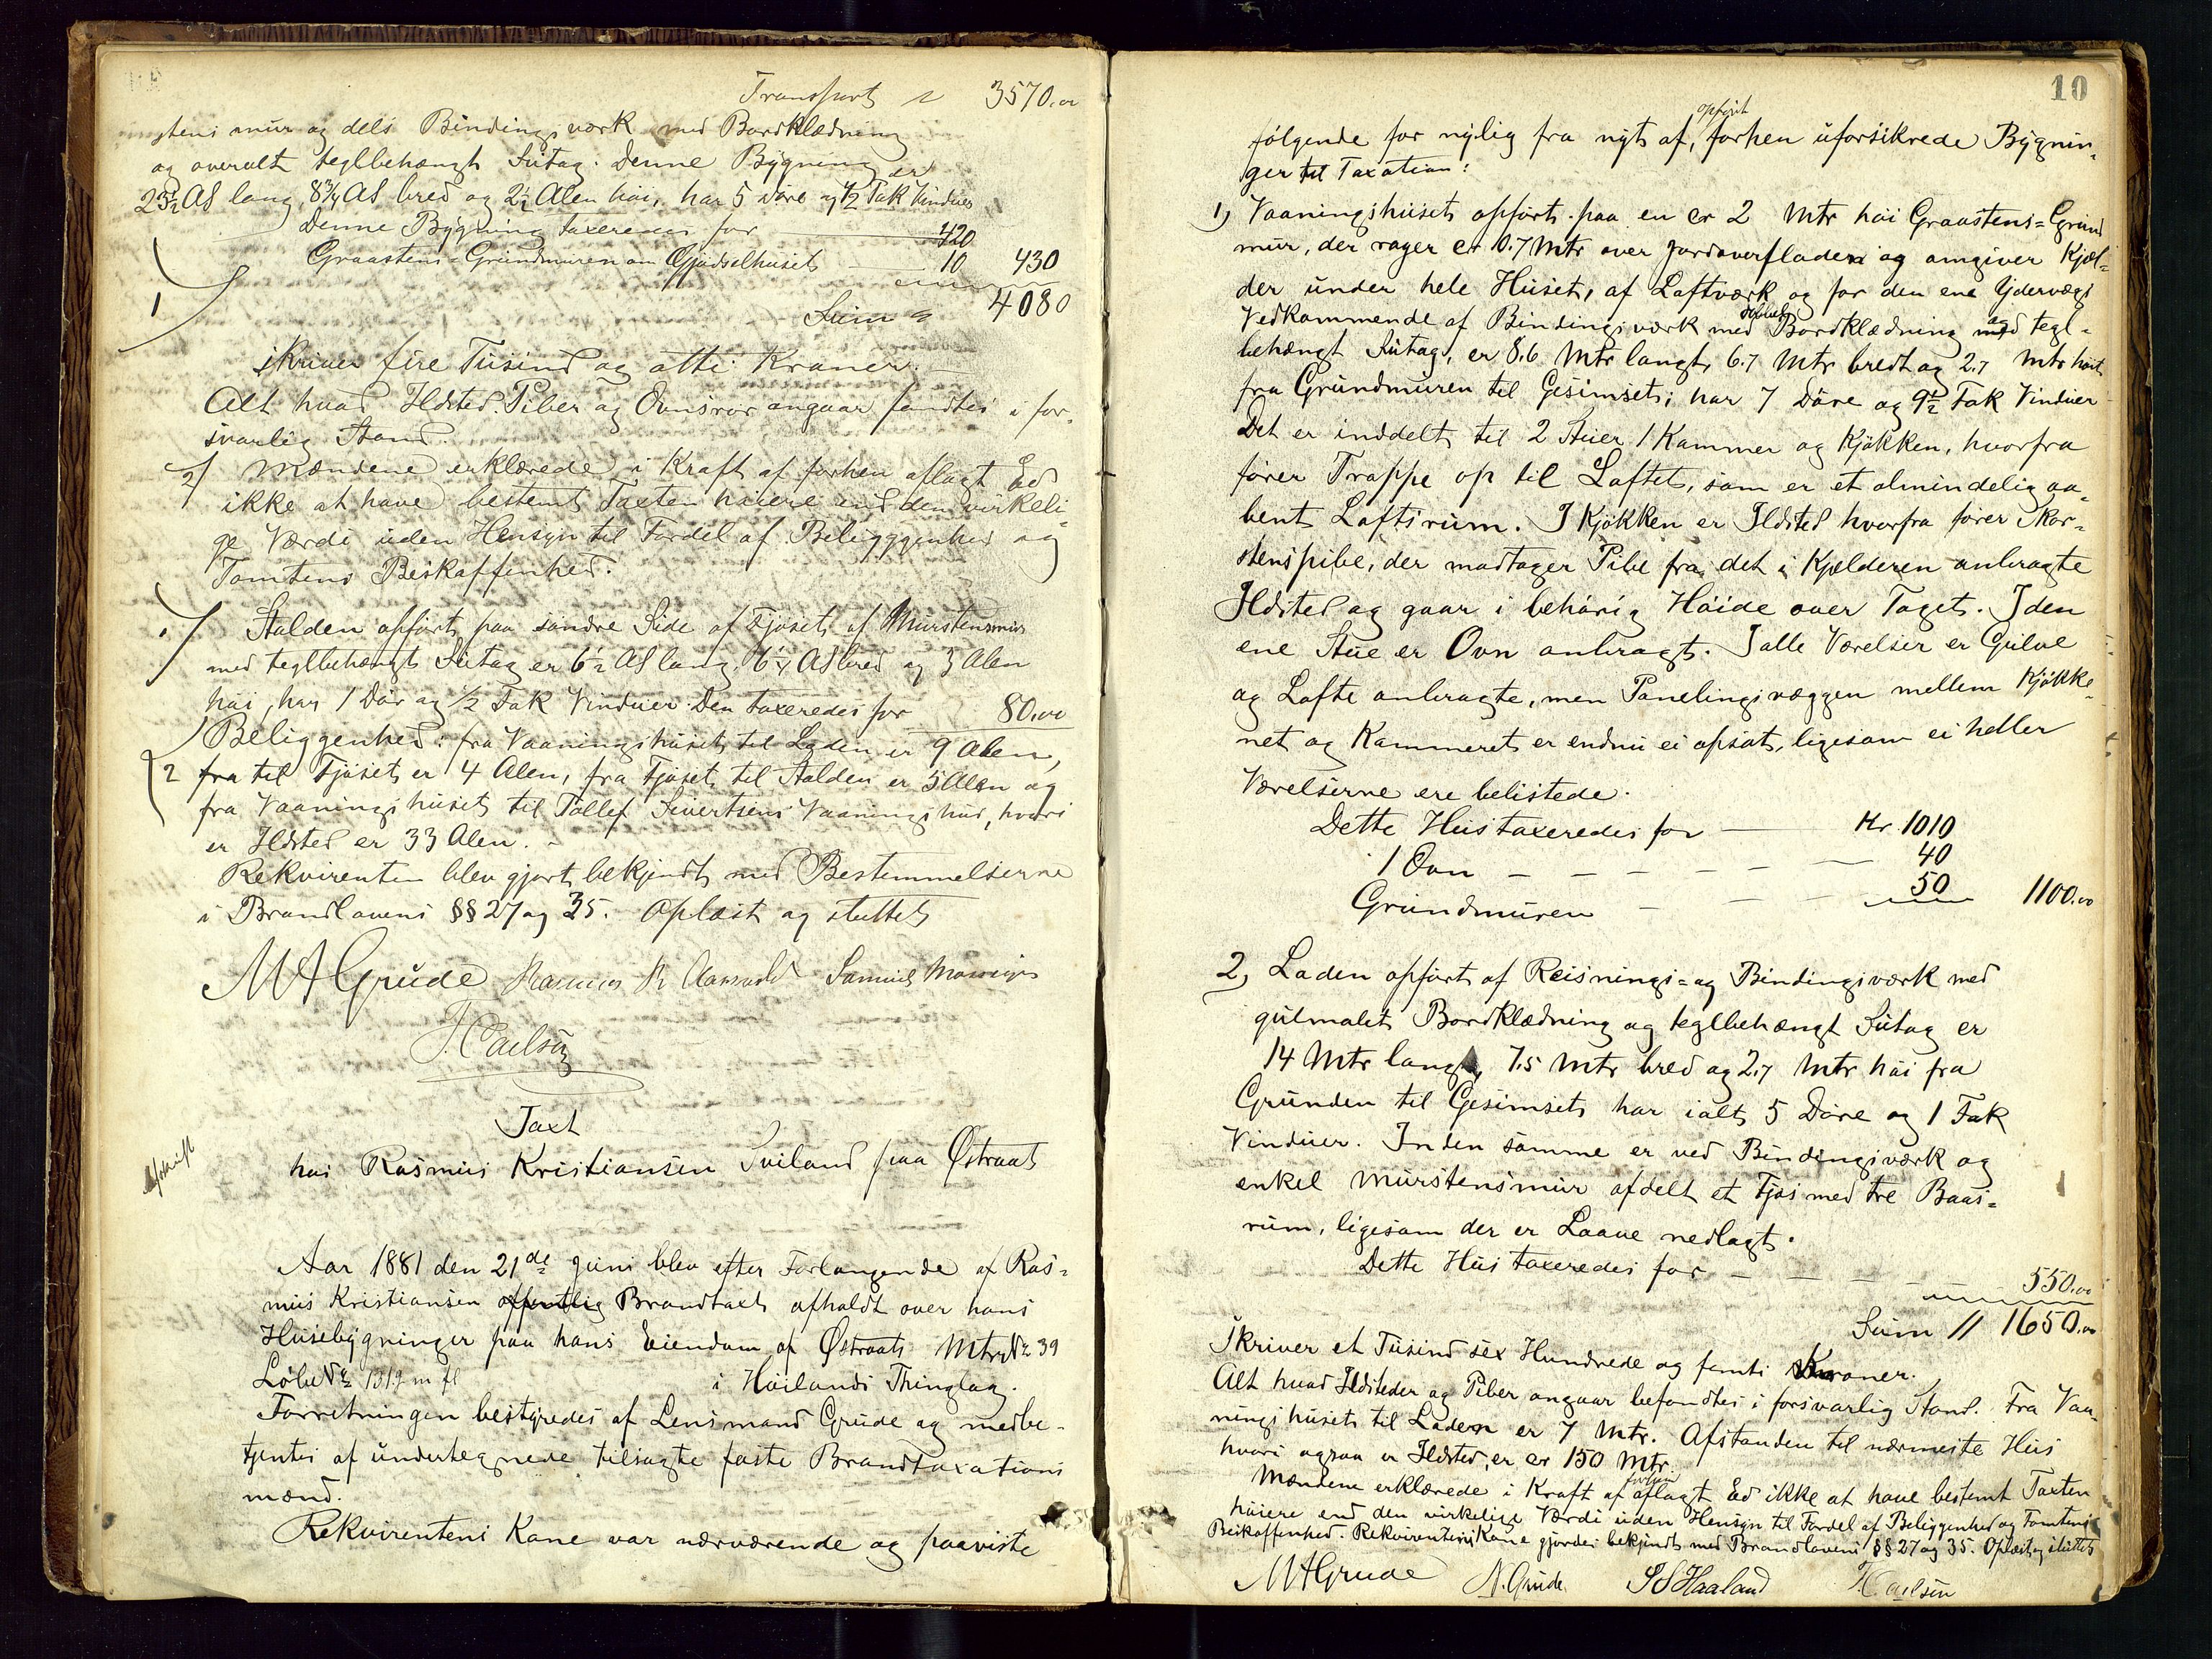 Transport 3570.00
stens mur og dels Bindingsværk med Bordklædning
og overalt teglbehængt Sutag. Denne Bygning er
23½ Al lang, 8¾ Al bred og 2½ Alen høi, har 5 Døre og ½ Fak Vinduer
Denne Bygning taxeredes for 420
Graastens-Grundmuren om Gjødselhuset 10 430
1 Sum 4080
skriver fire Tusind og otti Kroner.
Alt hvad Ildsted. Piber og Ovnsrør angaar fandtes i for-
svarlig Stand.
2) Mændene erklærede i Kraft af forhen aflagt Ed
ikke at have bestemt Taxten høiere end den virkeli-
ge Værdi uden Hensyn til Fordel af Beligggenhed og
Tomtens Beskaffenhed.
Stalden opført paa søndre Side af Fjøset af Murstensmur
med teglbehængt Sutag er 6½ Al lang, 6¼ Al bred og 3 Alen
høi, har 1 Dør og ½ Fak Vinduer. Den taxeredes for 80.00
Beliggenhed: fra Vaaningshuset til Laden er 9 Alen,
2 fra til Fjøset er 4 Alen, fra Fjøset til Stalden er 5 Alen og
fra Vaaningshuset til Tollef Sivertsens Vaaningshus, hvori
er Ildsted er 33 Alen.
Rekvirenten blev gjort bekjendt med Bestemmelserne
i Brandlovens §§ 27 og 35. Oplæst og sluttet
MAGrude Rasmus R Samuel
T. Carlsen
Taxt
Afskrift
hos Rasmus Kristiansen Sviland paa Østraat
Aar 1881 den 21de Juni blev efter Forlangende af Ras-
mus Kristiansen offentlig Brandtaxt afholdt over hans
Husebygninger paa hans Eiendom af Østraat Mtr No 39
Løbe No 131 m fl i Høilands Thinglag.
Forretningen bestyredes af Lensmand Grude og medbe-
tjentes af undertegnede tilsagte faste Brandtaxations
mænd.
Rekvirentens Kone var nærværende og paaviste
10
følgende for nylig fra nyt af opført, forhen uforsikrede Bygnin-
ger til Taxation:
1) Vaaningshuset opført paa en cr 2 Mtr høi Graastens-Grund
mur, der rager cr 0.7 Mtr over Jordoverfladen og omgiver Kjæl-
der under hele Huset, af Laftværk og for den ene Ydervægs
Vedkommende af Bindingsværk med Bordklædning og tegl-
behængt Sutag, er 8.6 Mtr langt, 6.7 Mtr bredt og 2.7 Mtr høit
fra Grundmuren til Gesimset; har 7 Døre og 9½ Fak Vinduer
Det er inddelt til 2 Stuer 1 Kammer og Kjøkken, hvorfra
fører Trappe op til Loftet, som er et almindelig aa-
bent Loftsrum. I Kjøkken er Ildsted hvorfra fører Skor-
stenspibe, der modtager Pibe fra det i Kjælderen anbragte
Ildsted og gaar i behørig Høide over Taget. I den
ene Stue er Ovn anbragt. I alle Værelser er Gulve
og Lofte anbragte, men Panelingsvæggen mellem Kjøkke-
net og Kammeret er endnu ei opsat, ligesom ei heller
Værelserne ere belistede.
Dette Hus taxeredes for Kr. 1010
1 Ovn 40
Grundmuren 50 1100.00
2) Laden opført af Reisnings- og Bindingsværk med
gulmalet Bordklædning og teglbehængt Sutag er
14 Mtr lang, 7.5 Mtr bred og 2.7 Mtr høi fra
Grunden til Gesimset har ialt 5 Døre og 1 Fak
Vinduer. Inden samme er ved Bindingsværk og
enkel Murstensmur afdelt et Fjøs med tre Baas-
rum, ligesom der er Laave nedlagt.
Dette Hus taxeredes for 550.00
Sum 1650.00
Skriver et Tusind sex Hundrede og femti Kroner.
Alt hvad Ildsteder og Piber angaar befandtes i forsvarlig Stand. Fra Vaa-
ningshuset til Laden er 7 Mtr. Afstanden til nærmeste Hus
hvori ogsaa er Ildsted, er cr 150 Mtr.
Mændene erklærede i Kraft af forhen aflagt Ed ikke at have bestemt Taxten
høiere end den virkelige Værdi uden Hensyn til Fordel af Beliggenhed og Tomtens
Beskaffenhed. Rekvirentens Kone gjordes bekjendt med Brandlovens §§ 27 og 35. Oplæst og sluttet
MAGrude N. Grude S S Haaland T. Carlsen